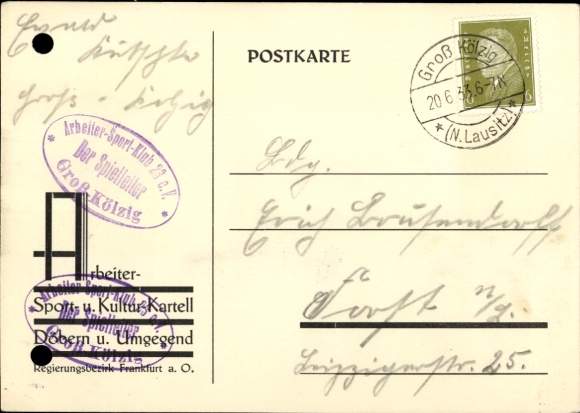 Ewald
Kutschke
Groß-Kölzig
POSTKARTE
Groß Kölzig
20.6.33.6-7N
* (N. Lausitz) *
6
* Arbeiter-Sport-Klub 23 e.V. *
Der Spielleiter
Groß Kölzig
Arbeiter-
Sport- u. Kultur-Kartell
Döbern u. Umgegend
Regierungsbezirk Frankfurt a. O.
* Arbeiter-Sport-Klub 23 e.V. *
Der Spielleiter
Groß Kölzig
Erich
Forst N/L.
Leipzigerstr. 25.